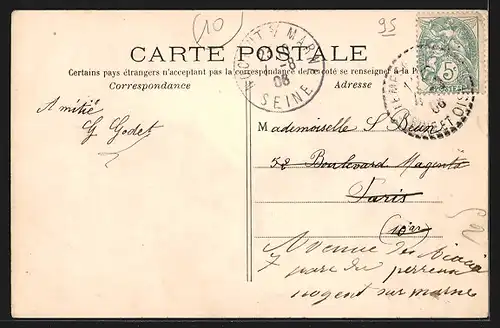 10
95
CARTE POSTALE
Certains pays étrangers n'acceptant pas la correspondance de ce coté se renseigner à la P
Correspondance
Adresse
NOGENT S/ MARN
8
06
SEINE
5c
06
ET OISE
Amitié
G Godet
Mademoiselle S
52 Boulevard Magenta
Paris
(10e ar)
Avenue des
7 parc du perreux
nogent sur marne